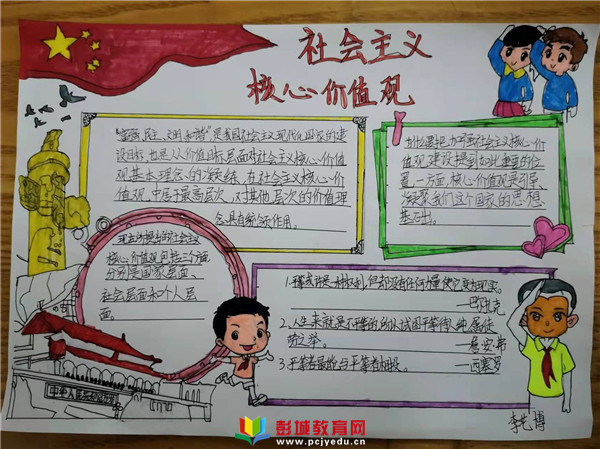 社会主义
核心价值观
"富强、民主、文明、和谐"是我国社会主义现代化国家的建
设目标,也是从价值目标层面对社会主义核心价值
观基本理念的凝练,在社会主义核心价
值观中居于最高层次,对其他层次的价值理
念具有统领作用。
什么要把加强社会主义核心价
值观建设提到如此重要的位
置,一方面,核心价值观是引导、
凝聚我们这个国家的思想
基础。
社会主义
核心价值观包括三个方面
分别是国家层面、
社会层面和个人层
面。
1.
但却没有任何力量使它变为现实。
—巴尔扎克
2.人生来就是不平等的,所以试图平等待人,纯属徒
劳之举。
—詹·安·弗
3.平等者最能与平等者相投。
—西塞罗
李艺博
彭城教育网
www.pcjyedu.cn